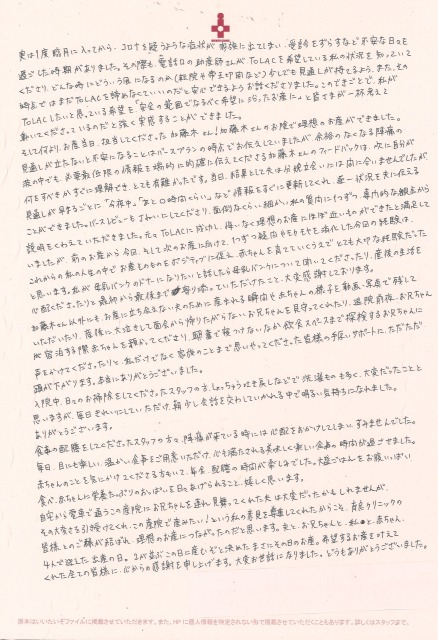 実は1度臨月に入ってから、コロナを疑うような症状が家族に出てしまい、受診をずらすなど不安な日々を
過ごした時期がありました。その際も、電話口の助産師さんがTOLACを希望している私の状況を知っていて
くださり、どんな時にどういう風になるのか(転院や帝王切開など)少しでも見通しが持てるよう、また、その
時点ではまだTOLACを諦めなくていいのだと安心できるようお話くださりました。このできごとで、私が
TOLACしたいと思っている希望を「安全の範囲でなるべく希望に沿ったお産に。」と皆さまが一杯考えて
動いてくださっているのだと強く実感することができました。
そして何より、お産当日、担当してくださった加藤木さん!加藤木さんのお陰で理想のお産ができました。
見通しが立たないと不安になることはバースプランの時点でお伝えしていましたが、余裕のなくなる陣痛の
波の中でも、必要最低限の情報を端的に的確に伝えてくださる加藤木さんのフィードバックは、次に自分が
何をすべきかすぐに理解でき、とても有難かったです。当日、結果として夫は分娩立会いには間に合いませんでしたが
見通しが見えるごとに「今夜中。」「あと〇時間くらい。」など情報をすぐに更新してくれ、逐一状況を夫に伝える
ことができました。バースレビューもていねいにしてくださり、面倒くさい細かい私の質問にも1つずつ、専門的な観点から
説明をくわえていただきました。元々TOLACに成功し、悔いなく理想のお産にほぼ近いものができたと満足して
いましたが、前のお産から今回、そして次のお産に向けて、1つずつ疑問やモヤモヤを流れした今回の経験は、
これからの私の人生の中でお産そのものをポジティブに捉え、赤ちゃんを育てていくうえでとても大切な経験だった
と思います。私が母乳バンクのドナーになりたいと話したら母乳バンクについて聞いてくださったり、産後の生活を
心配くださりと最初から最後まで寄り添っていただけたこと、大変感謝しております。
加藤木さん以外にも、お産に立ち会えない夫のために産まれる瞬間や赤ちゃんの様子を動画、写真で残して
いただいたり、産後に大泣きして面会から帰りたがらないお兄ちゃんを見守ってくれたり、退院前夜、お兄ちゃんに
宿泊する際赤ちゃんを預かってくださり、騒音で抜けないなか飲食スペースまで探検するお兄ちゃんに
声をかけてくださったりと、私だけでなく家族のことまで思いやってくださった皆様の手厚いサポートに、ただただ
頭が下がります。本当にありがとうございました。
入院中、日々のお掃除をしてくださったスタッフの方、しょっちゅう吐き戻しなどで洗濯ものも多く、大変だったことと
思いますが、毎日きれいにしていただけ、朝少し会話を交わしていかれる中で明るい気持ちになれました。
ありがとうございます。
食事の配膳をしてくださったスタッフの方々、陣痛が来ている時には心配をおかけしてしまい、すみませんでした。
毎日、目にも楽しい、温かい食事をご用意いただけ、心も満たされる美味しく楽しい食事の時間が過ごせました。
赤ちゃんのことを気にかけてくださる方もいて、毎食、配膳の時間が楽しみでした。大盛ごはんをお腹いっぱい
食べ、赤ちゃんに栄養たっぷりのおっぱいを日々あげられること、嬉しく思います。
自宅から電車で通うこの産院にお兄ちゃんを連れ見舞ってくれた夫は大変だったかもしれませんが、
その大変さを引き受けてくれ、この産院で産みたい!という私の意見を尊重してくれたからこそ、育良クリニックの
皆様とのご縁が結ばれ、理想のお産につながったのだと思います。夫と、お兄ちゃんと、私と、赤ちゃん、
4人で迎えた出産の日。2が並ぶこの日に産むぞと決めたまさにその日のお産。希望するお産を叶えて
くれた全ての皆様に、心からの感謝を申し上げます。大変お世話になりました。どうもありがとうございました。
原本はいいたいそファイルに掲載させていただきます。また、HPに個人情報を特定されない形で掲載させていただくこともあります。詳しくはスタッフまで。